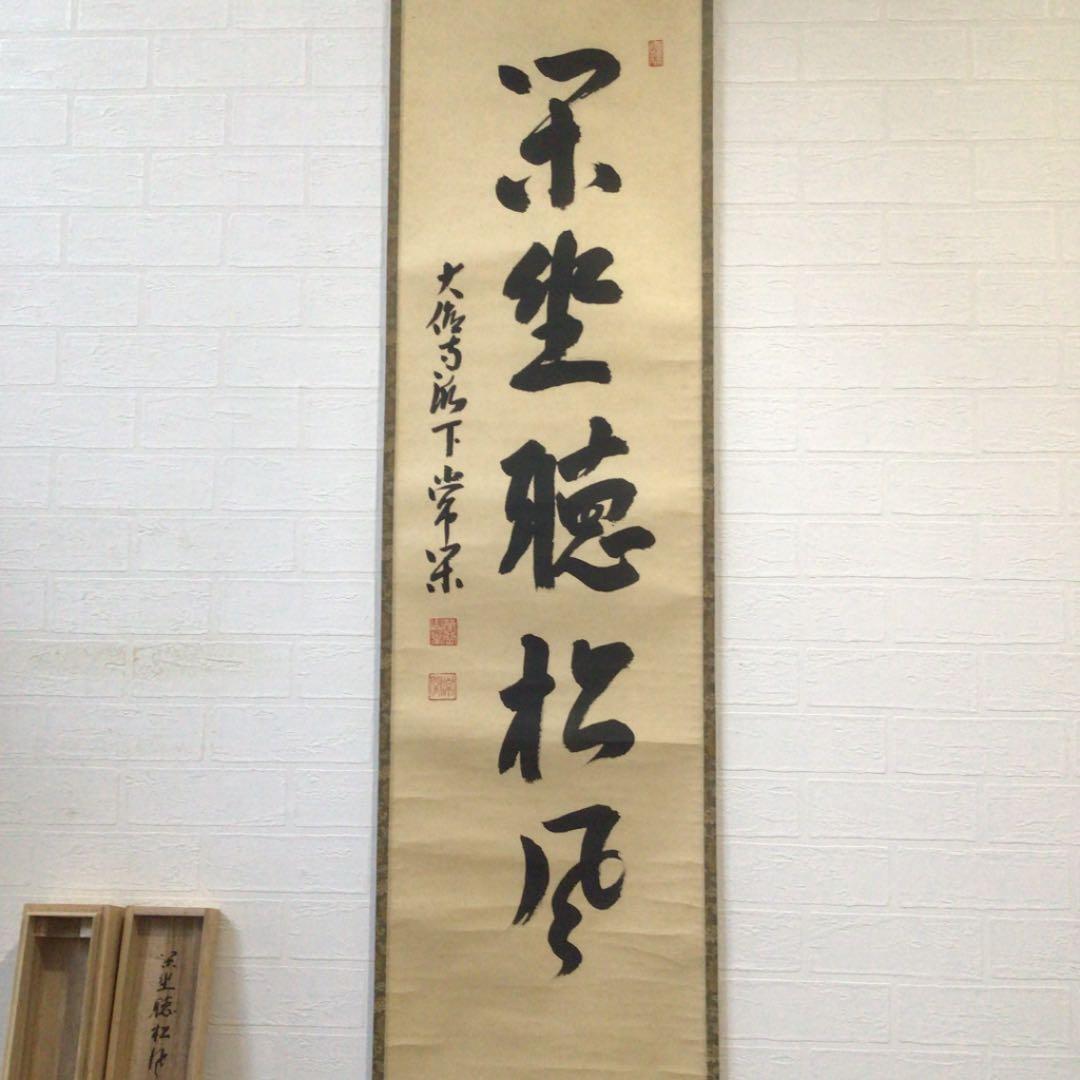 閑坐聴松風
大徳寺派下常栄
閑坐聴松風